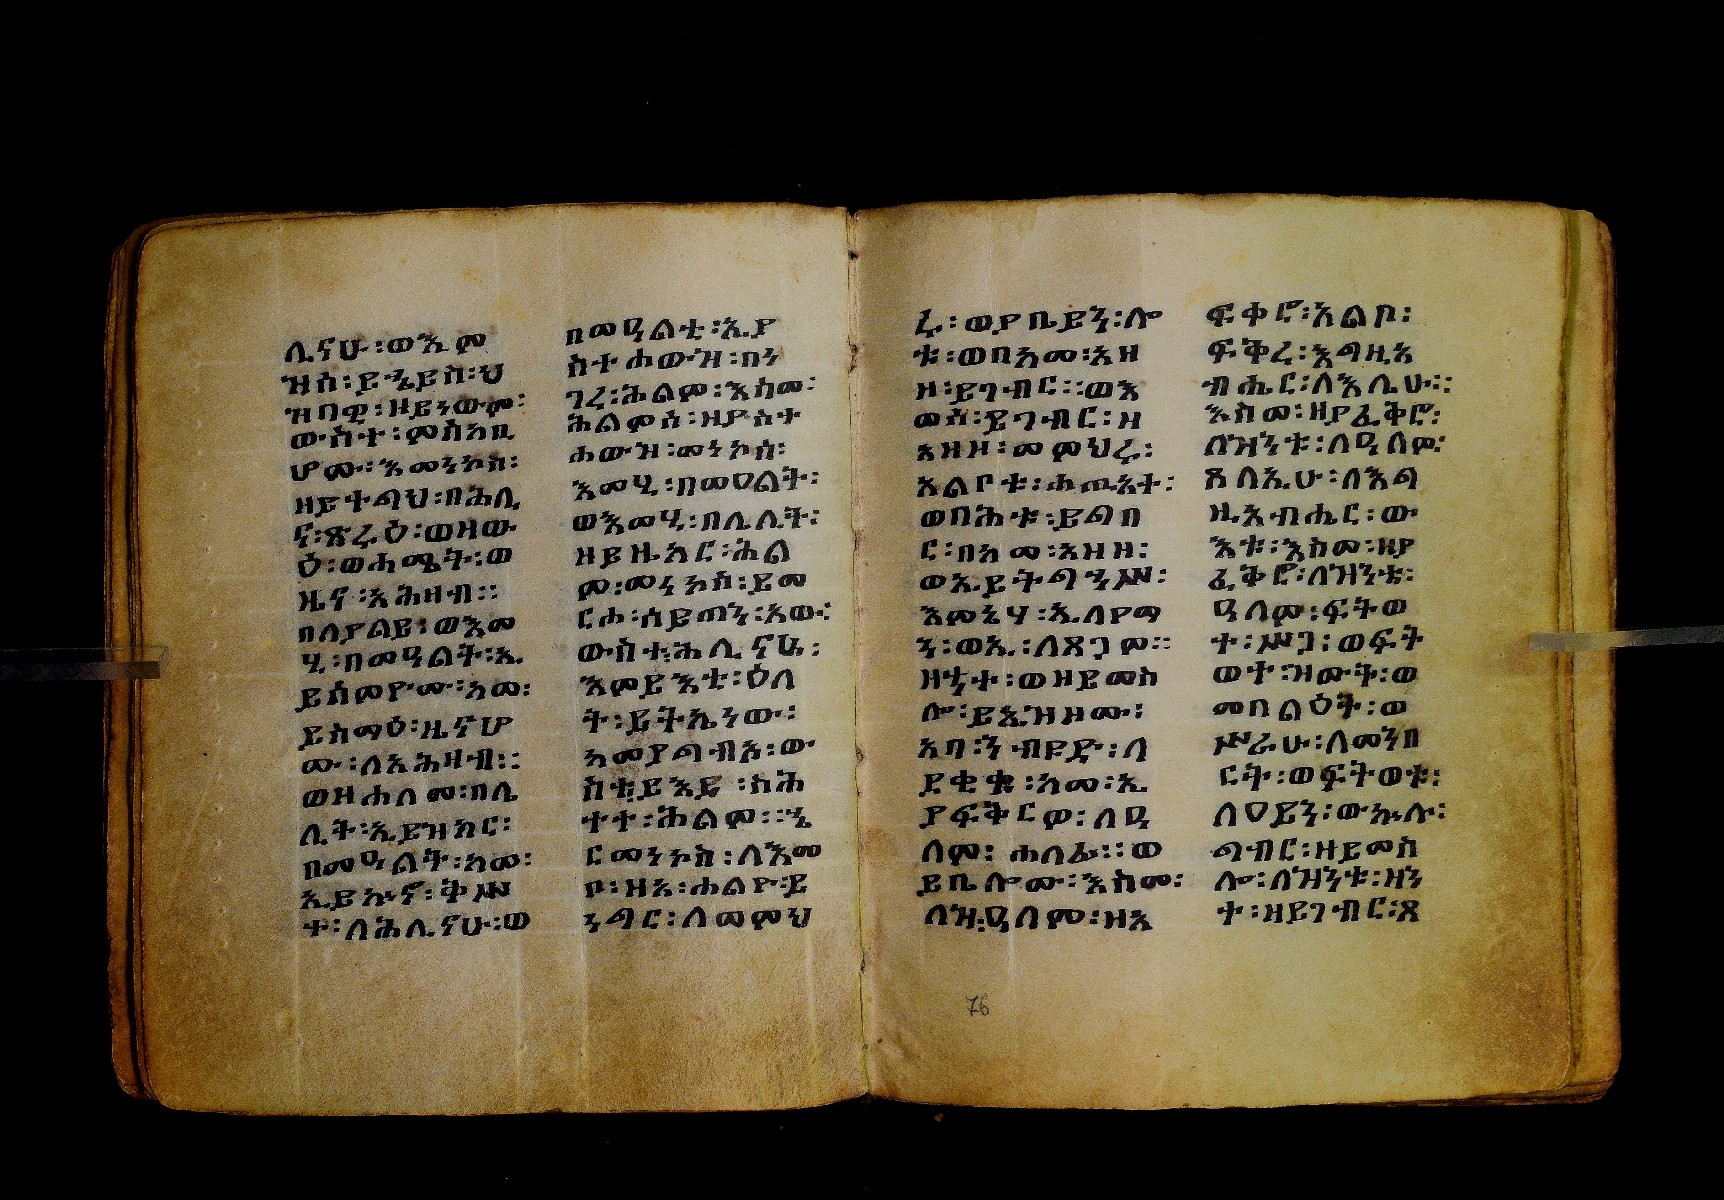 ሊናሁ፡ወእም
ዝሰ፡ይኄይስ፡ህ
ዝበዊ፡ዘይነውም፡
ውስተ፡ምስካቢ
ሆሙ፡፡እመነኮስ፡
ዘይተጋህ፡በሕሊ
ና፡ጽራዕ፡ወዘው
ዕ፡ወሐሜት፡ወ
ዜና፡አሕዛብ፡፡
በለያልይ፡ወእመ
ሂ፡በመዓልት፡ኢ
ይሰመዮሙ፡አመ፡
ይስማዕ፡ዜናሆ
ሙ፡ለአሕዛብ፡፡
ወዘሐለመ፡በሌ
ሊት፡ኢይዝክር፡
በመዓልት፡አመ፡
ኢይኩኖ፡ቅሥ
ተ፡ለሕሊናሁ፡ወ
በመዓልቲ፡ኢያ
ስተሐውዝ፡በነ
ገረ፡ሕልም፡እስመ፡
ሕልምሰ፡ዘያስተ
ሐውዝ፡መነኮሰ፡
እመሂ፡በመዐልት፡
ወእመሂ፡በሌሊት፡
ዘይዜከር፡ሕል
መ፡መነኮስ፡ይመ
ርሖ፡ሰይጣን፡አው፡
ውስተ፡ሕሊናሁ፡
እምይእቲ፡ዕለ
ት፡ይትኤነው፡
አመያጋብኦ፡ው
ስቲይእይ፡ስሕ
ተተ፡ሕልም፡፡ኄ
ር፡መነኮስ፡ለእመ
ቦ፡ዘአ፡ሐልዮ፡ይ
ንግር፡ለመምህ
ሩ፡ወያቤይን፡ሎ
ቱ፡ወበአመ፡አዘ
ዘ፡ይገብር፡፡ወእ
መሰ፡ይገብር፡ዘ
አዘዘ፡መምህሩ፡
አልቦቱ፡ሐጢአት፡
ወበሕቱ፡ይግበ
ር፡በአመ፡አዘዘ፡
ወኢይትጋነሥ፡
እመኒሃ፡ኢለየማ
ን፡ወኢ፡ለጸጋም፡፡
ዘኂተ፡ወዘይመስ
ሎ፡ይኢዝዘሙ፡
አባ፡ንብዩድ፡ለ
ደቂቁ፡አመ፡ኢ
ያፍቅርዎ፡ለዓ
ለም፡ሐለፊ፡፡ወ
ይቤሎሙ፡እስመ፡
ለዝ፡ዓለም፡ዘአ
ፍቅሮ፡አልቦ፡
ፍቅረ፡እግዚአ
ብሔር፡ለእሊሁ፡፡
እስመ፡ዘያፈቅሮ፡
ለዝንቱ፡ለዓለም፡
ጸላኢሁ፡ለእግ
ዚአብሔር፡ው
እቱ፡እስመ፡ዘያ
ፈቅሮ፡ለዝንቱ፡
ዓለም፡ፍትወ
ተ፡ሥጋ፡ወፍት
ወተ፡ዝሙት፡ወ
መበልዕት፡ወ
ሥራሁ፡ለመንበ
ርት፡ወፍትወቱ፡
ለዐይን፡ወኵሉ፡
ጋብር፡ዘይመስ
ሎ፡ለዝንቱ፡ዘን
ተ፡ዘይገብር፡ጸ
76